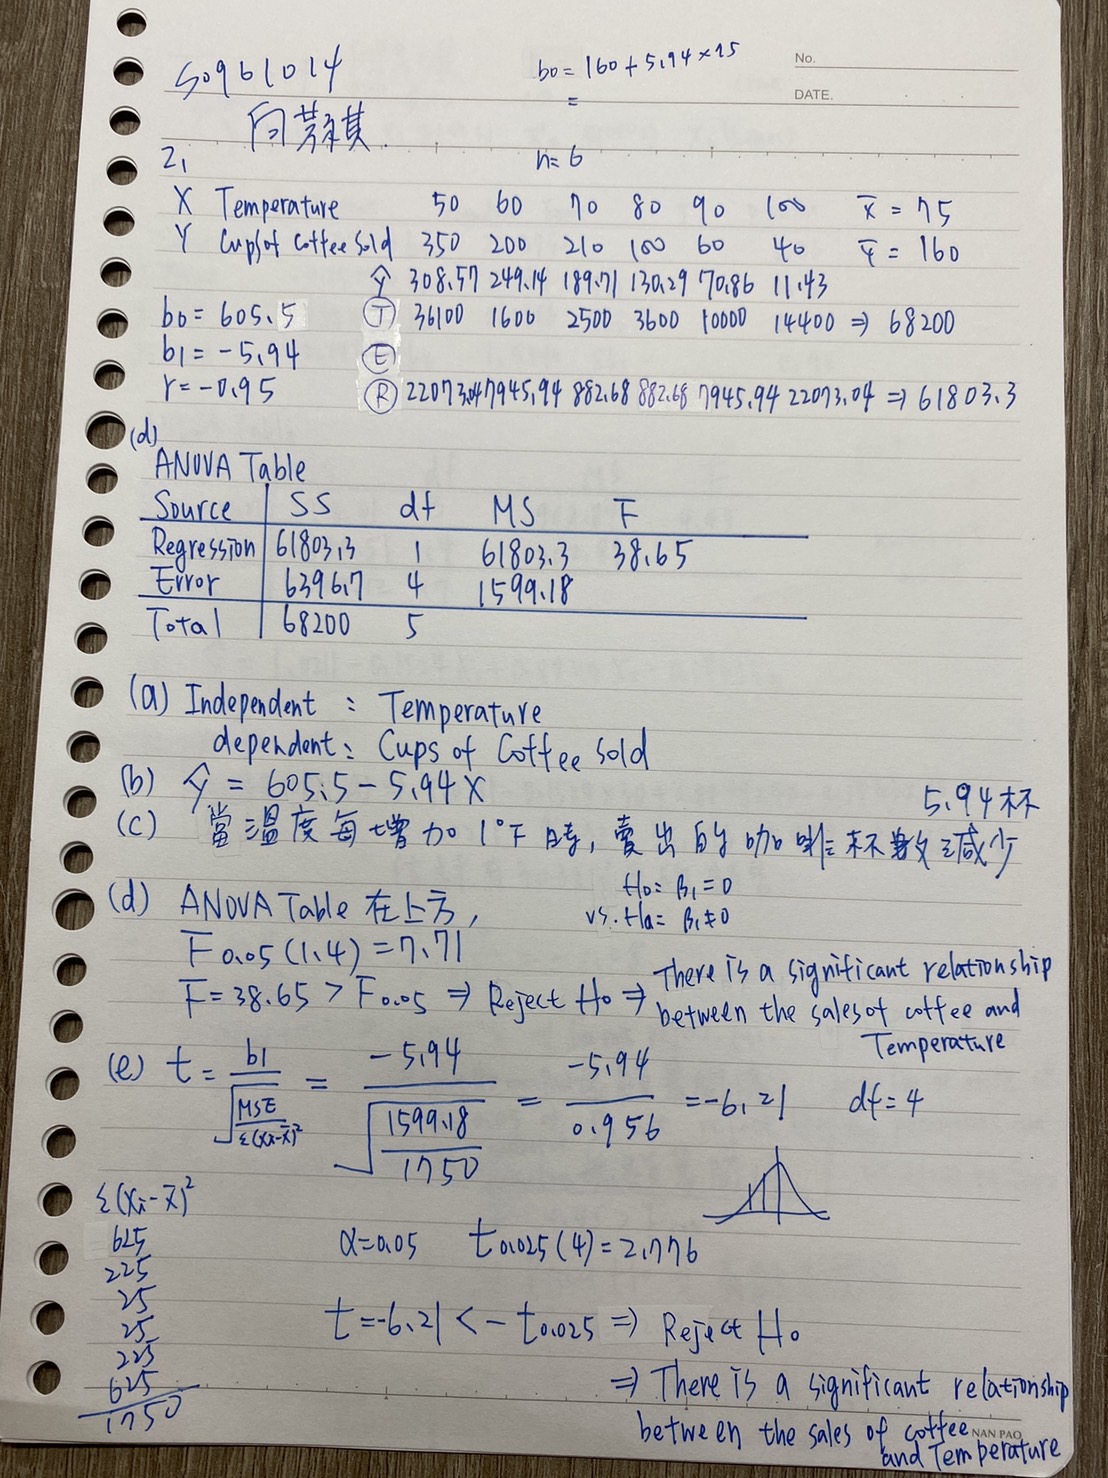 S0961014
b0 = 160 + 5.94 × 75
=
No.
DATE.
2.
n = 6
X Temperature 50 60 70 80 90 100 x̄ = 75
Y Cups of Coffee Sold 350 200 210 100 60 40 ȳ = 160
ŷ 308.57 249.14 189.71 130.29 70.86 11.43
b0 = 605.5 Ⓣ 36100 1600 2500 3600 10000 14400 ⇒ 68200
b1 = -5.94 Ⓔ
r = -0.95 Ⓡ 22073.04 7945.94 882.68 882.68 7945.94 22073.04 ⇒ 61803.3
(d)
ANOVA Table
Source SS df MS F
Regression 61803.3 1 61803.3 38.65
Error 6396.7 4 1599.18
Total 68200 5
(a) Independent : Temperature
dependent : Cups of Coffee Sold
(b) ŷ = 605.5 - 5.94X
(c) 當溫度每增加1°F時, 賣出的咖啡杯數減少
5.94杯
(d) ANOVA Table 在上方,
H0 = β1 = 0
vs. Ha = β1 ≠ 0
F0.05 (1.4) = 7.71
F = 38.65 > F0.05 ⇒ Reject H0 ⇒ There is a significant relationship
between the sales of coffee and
Temperature
(e) t = b1 / √(MSE / Σ(Xi-x̄)²) = -5.94 / √(1599.18 / 1750) = -5.94 / 0.956 = -6.21 df = 4
Σ(Xi-x̄)²
625
225
25
25
225
625
1750
α = 0.05 t0.025 (4) = 2.776
t = -6.21 < - t0.025 ⇒ Reject H0
⇒ There is a significant relationship
between the sales of coffee
and Temperature
NAN PAO